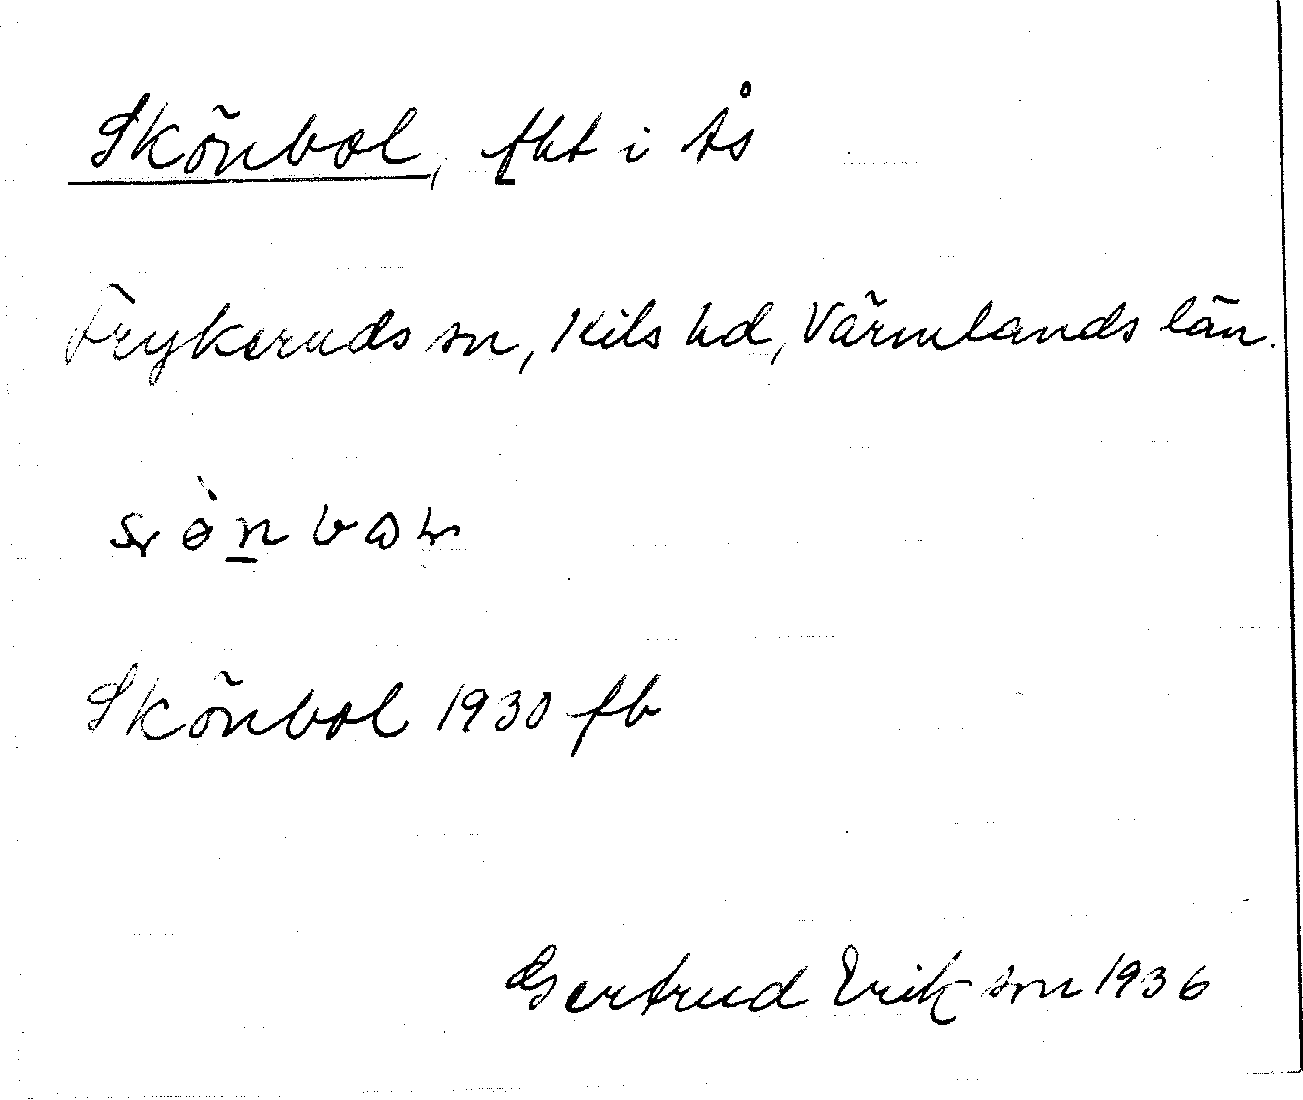 Skönbol, fht i Ås
Frykeruds sn, Kils hd, Värmlands län.
Skönbol 1930 fb
Gertrud Erikson 1936